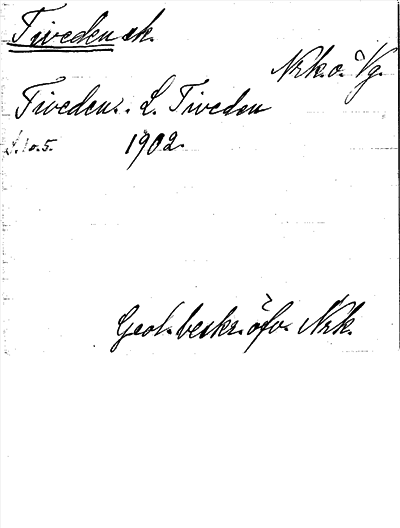 Tiveden sk.
Nrk. o. Vg.
Tiveden: L. Tiveden
s. 1 o. 5. 1902.
Geol. beskr. öfv. Nrk.